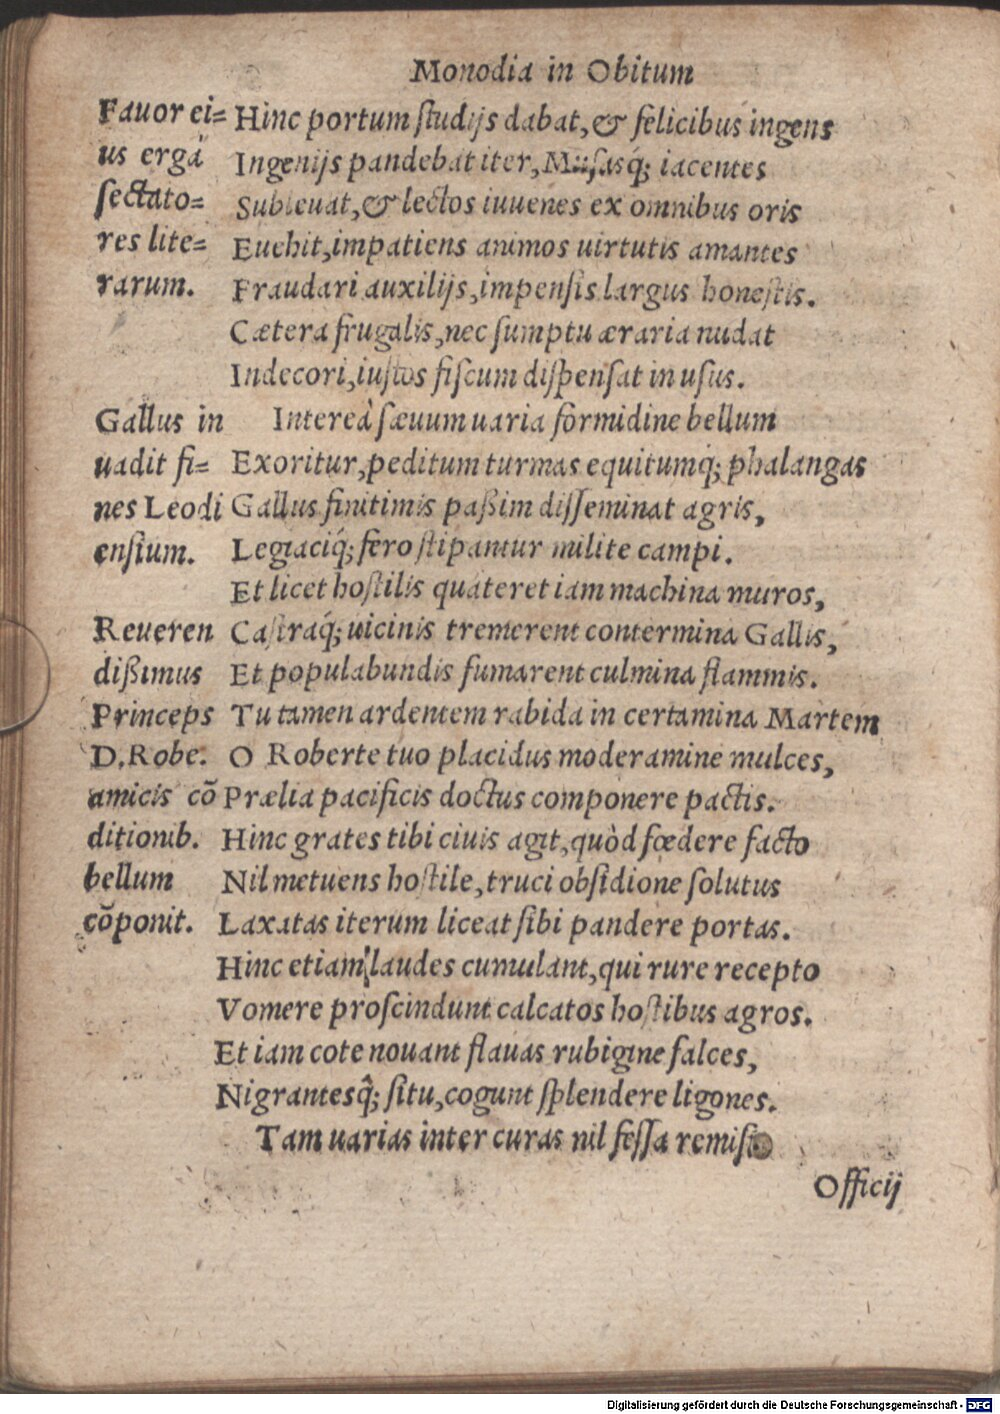 Monodia in Obitum
Fauor ei=
us ergà
sectato=
res lite=
rarum.
Hinc portum studijs dabat, & felicibus ingens
Ingenijs pandebat iter, Musasq́; iacentes
Subleuat, & lectos iuuenes ex omnibus oris
Euehit, impatiens animos uirtutis amantes
Fraudari auxilijs, impensis largus honestis.
Cætera frugalis, nec sumptu æraria nudat
Indecori, iustos fiscum dispensat in usus.
Gallus in
uadit fi=
nes Leodi
ensium.
Intereà sæuum uaria formidine bellum
Exoritur, peditum turmas equitumq́; phalangas
Gallus finitimis paßim disseminat agris,
Legiaciq́; fero stipantur milite campi.
Et licet hostilis quateret iam machina muros,
Reueren
dißimus
Princeps
D. Robe.
amicis cō
ditionib.
bellum
cōponit.
Castraq́; uicinis tremerent contermina Gallis,
Et populabundis fumarent culmina flammis.
Tu tamen ardentem rabida in certamina Martem
O Roberte tuo placidus moderamine mulces,
Prælia pacificis doctus componere pactis.
Hinc grates tibi ciuis agit, quòd fœdere facto
Nil metuens hostile, truci obsidione solutus
Laxatas iterum liceat sibi pandere portas.
Hinc etiam laudes cumulant, qui rure recepto
Vomere proscindunt calcatos hostibus agros.
Et iam cote nouant flauas rubigine falces,
Nigrantesq̂; situ, cogunt splendere ligones.
Tam uarias inter curas nil fessa
Officij
Digitalisierung gefördert durch die Deutsche Forschungsgemeinschaft - DFG